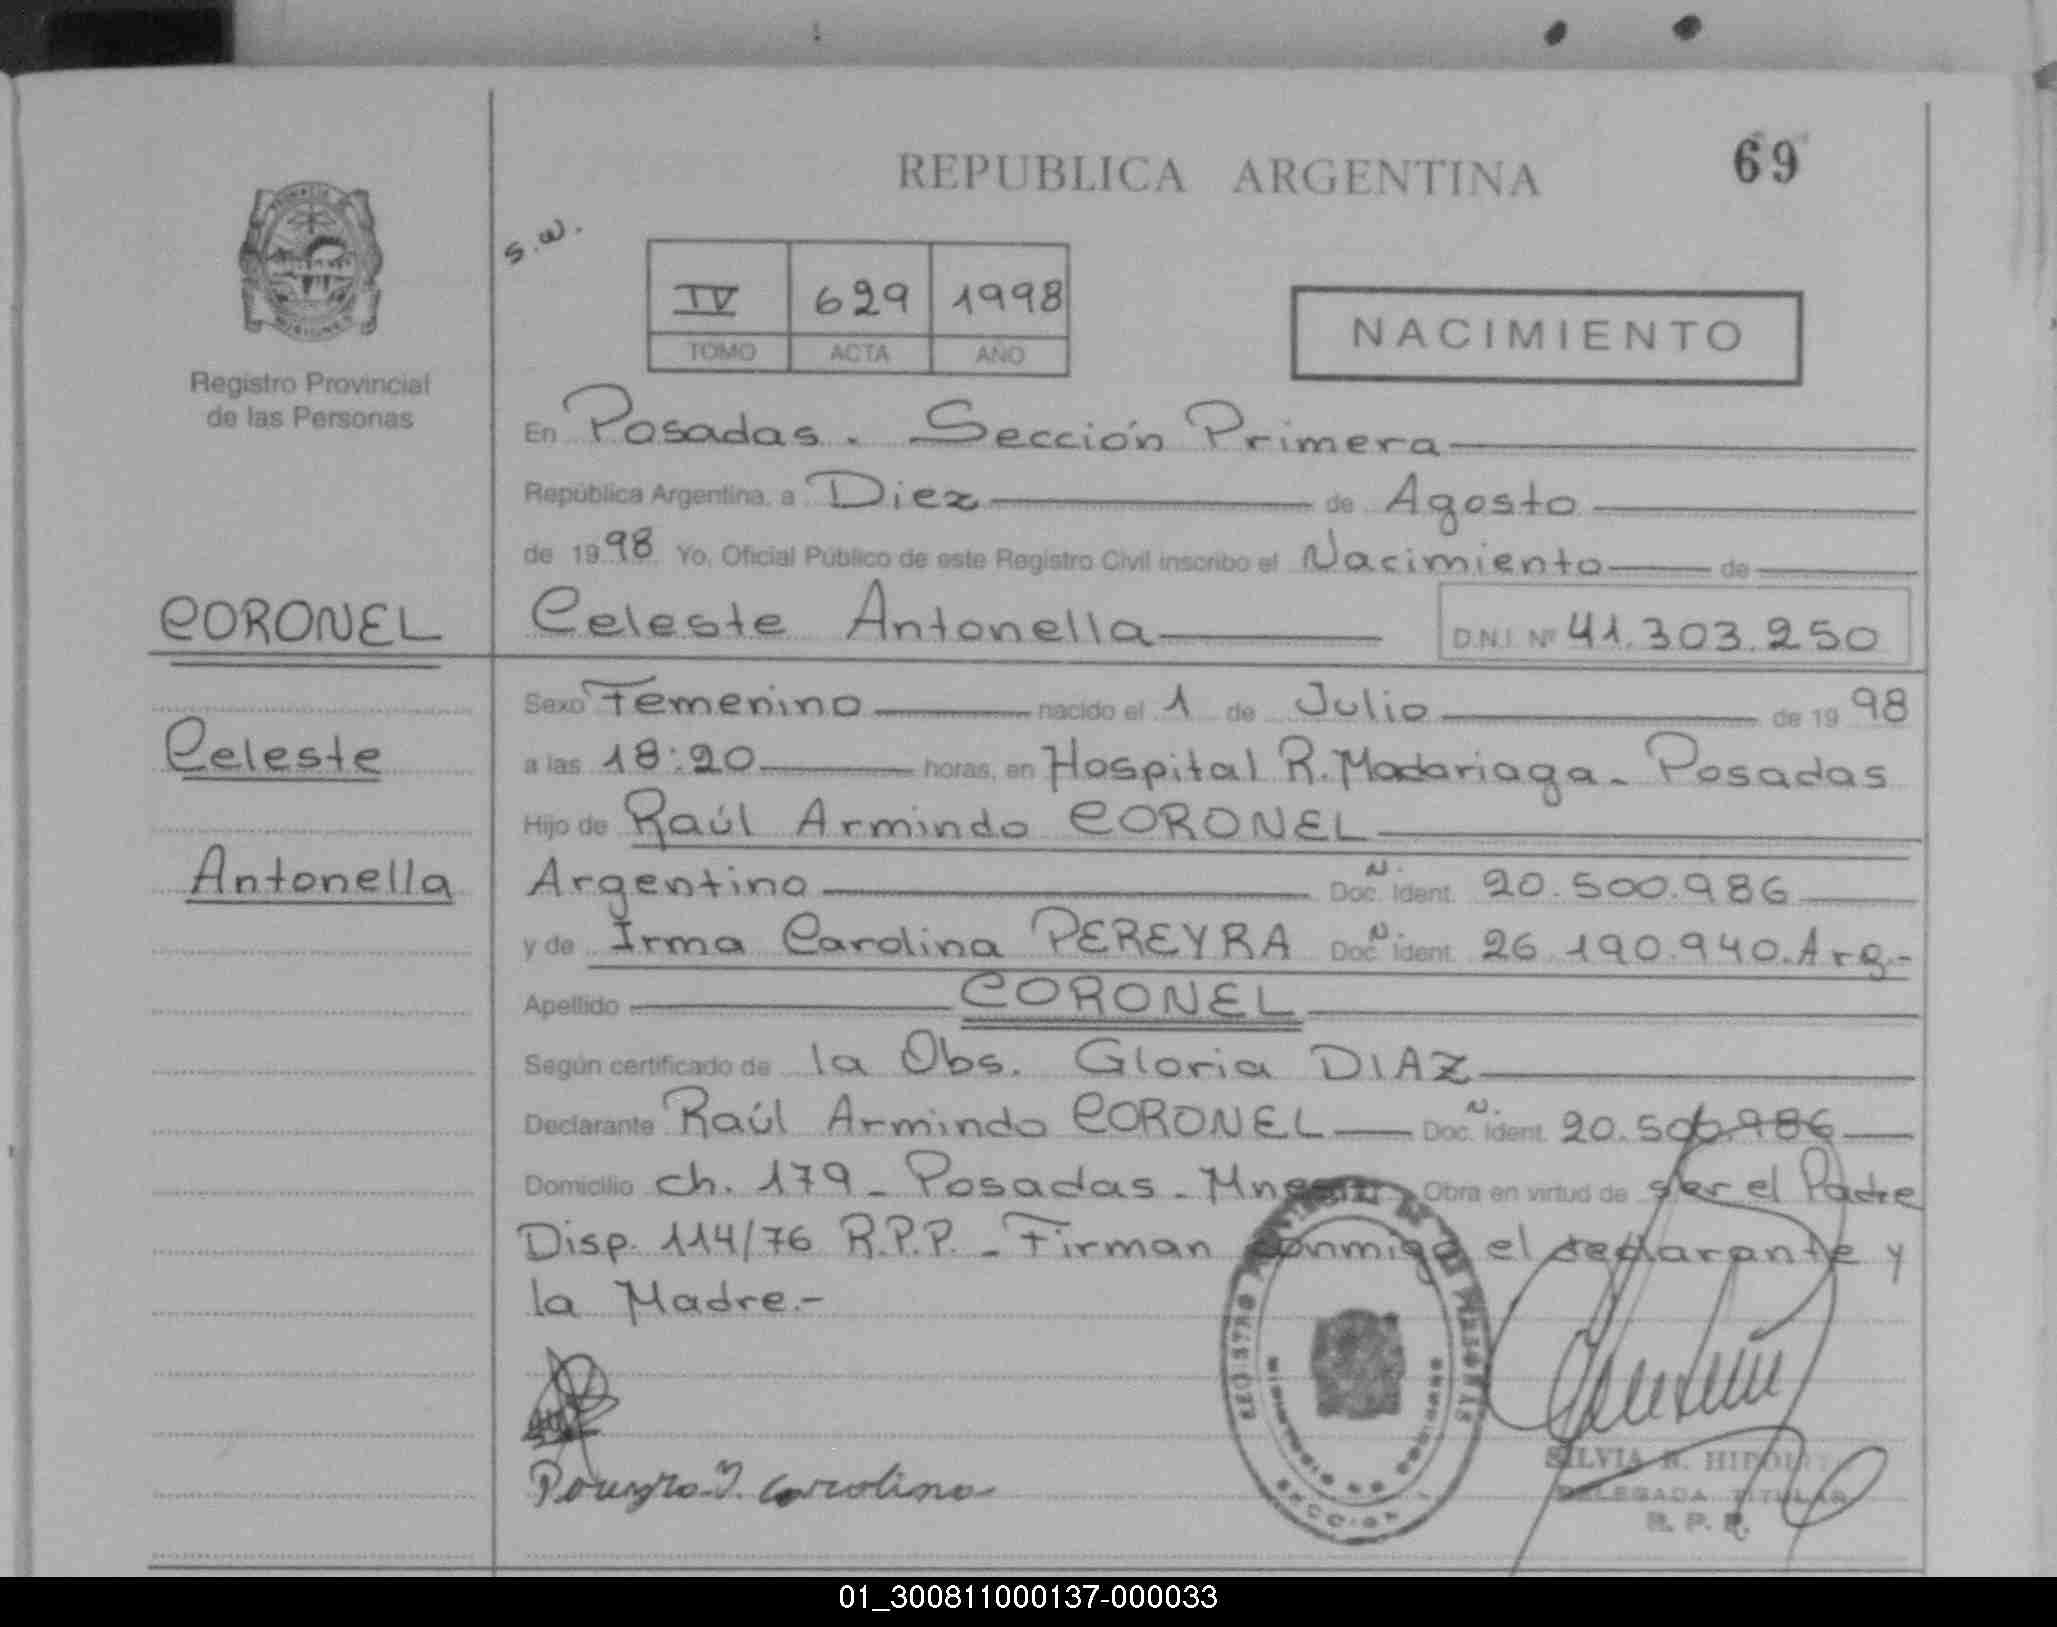 REPUBLICA ARGENTINA
69
s.w.
IV 629 1998
TOMO ACTA AÑO
NACIMIENTO
Registro Provincial
de las Personas
En Posadas. Sección Primera
República Argentina, a Diez de Agosto
de 1998 Yo, Oficial Público de este Registro Civil inscribo el Nacimiento de
CORONEL
Celeste Antonella D.N.I. Nº 41.303.250
Sexo Femenino nacido el 1 de Julio de 1998
Celeste
a las 18:20 horas, en Hospital R. Madariaga - Posadas
Hijo de Raúl Armindo CORONEL
Antonella
Argentino Doc. N. Ident. 20.500.986
y de Irma Carolina PEREYRA Doc. N. Ident. 26.190.940. Arg.-
Apellido CORONEL
Según certificado de la Obs. Gloria DIAZ
Declarante Raúl Armindo CORONEL Doc. N. Ident. 20.500.986
Domicilio ch. 179 - Posadas - Obra en virtud de ser el Padre
Disp. 114/76 R.P.P. - Firman conmigo el declarante y
la Madre.-
REGISTRO PROVINCIAL DE LAS PERSONAS
MINISTERIO DE GOBIERNO
SECCION 1
SILVIA R.
DELEGADA TITULAR
R. P. P.
01_300811000137-000033